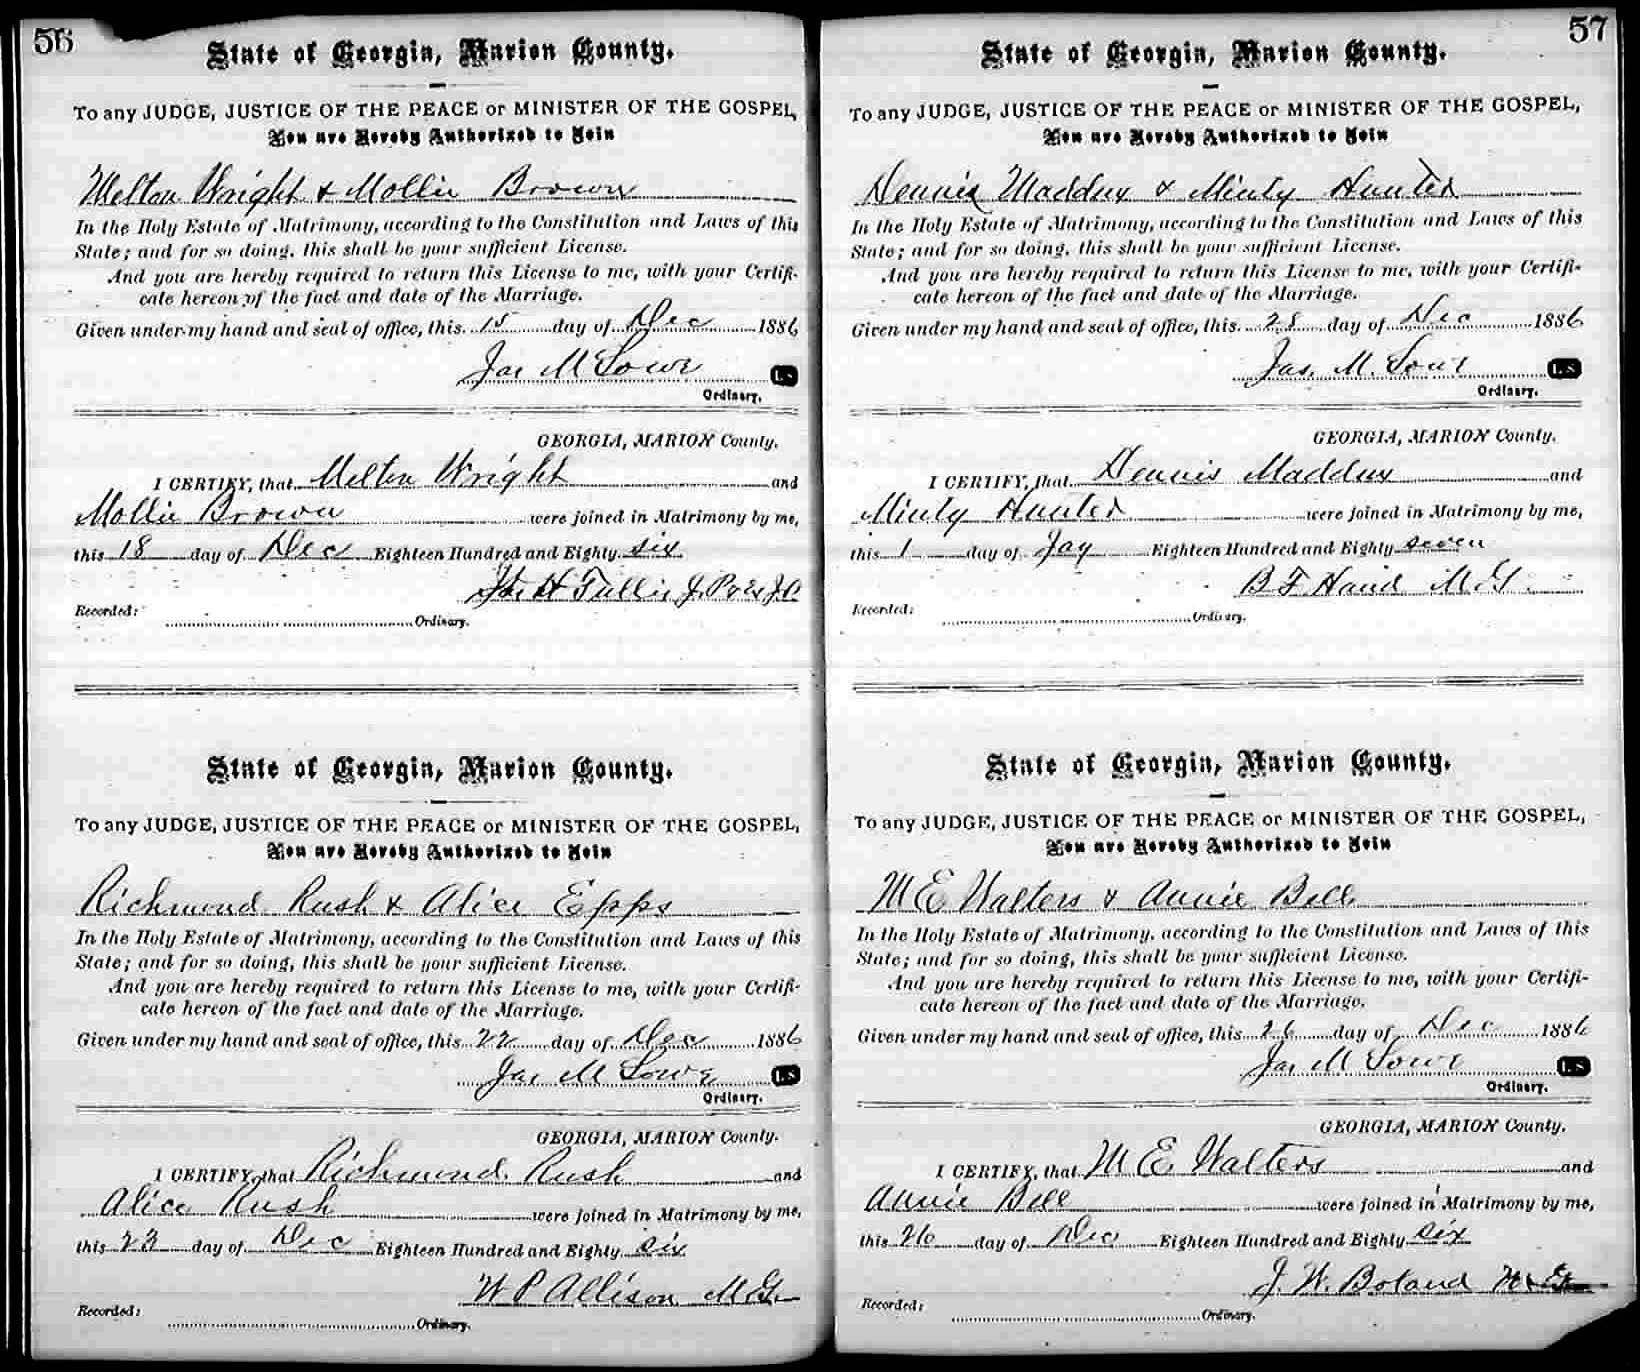 56
State of Georgia, Marion County.
To any JUDGE, JUSTICE OF THE PEACE or MINISTER OF THE GOSPEL,
You are Hereby Authorized to Join
Melton Wright & Mollie Brown
In the Holy Estate of Matrimony, according to the Constitution and Laws of this
State; and for so doing, this shall be your sufficient License.
And you are hereby required to return this License to me, with your Certifi-
cate hereon of the fact and date of the Marriage.
Given under my hand and seal of office, this 15 day of Dec 1886
Jas M Lowe L.S
Ordinary.
GEORGIA, MARION County.
I CERTIFY, that Melton Wright and
Mollie Brown were joined in Matrimony by me,
this 18 day of Dec Eighteen Hundred and Eighty six
H Tullis J.P.
Recorded:
Ordinary.
State of Georgia, Marion County.
To any JUDGE, JUSTICE OF THE PEACE or MINISTER OF THE GOSPEL,
You are Hereby Authorized to Join
Richmond Rush & Alice Epps
In the Holy Estate of Matrimony, according to the Constitution and Laws of this
State; and for so doing, this shall be your sufficient License.
And you are hereby required to return this License to me, with your Certifi-
cate hereon of the fact and date of the Marriage.
Given under my hand and seal of office, this 22 day of Dec 1886
Jas M Lowe L.S
Ordinary.
GEORGIA, MARION County.
I CERTIFY, that Richmond Rush and
Alice Rush were joined in Matrimony by me,
this 23 day of Dec Eighteen Hundred and Eighty six
W P Allison M.G.
Recorded:
Ordinary.
57
State of Georgia, Marion County.
To any JUDGE, JUSTICE OF THE PEACE or MINISTER OF THE GOSPEL,
You are Hereby Authorized to Join
Dennis Maddux & Minty Hunter
In the Holy Estate of Matrimony, according to the Constitution and Laws of this
State; and for so doing, this shall be your sufficient License.
And you are hereby required to return this License to me, with your Certifi-
cate hereon of the fact and date of the Marriage.
Given under my hand and seal of office, this 28 day of Dec 1886
Jas. M. Lowe L.S
Ordinary.
GEORGIA, MARION County.
I CERTIFY, that Dennis Maddux and
Minty Hunter were joined in Matrimony by me,
this 1 day of Jay Eighteen Hundred and Eighty seven
B F Hand M.G.
Recorded:
Ordinary.
State of Georgia, Marion County.
To any JUDGE, JUSTICE OF THE PEACE or MINISTER OF THE GOSPEL,
You are Hereby Authorized to Join
M E Walters & Annie Bell
In the Holy Estate of Matrimony, according to the Constitution and Laws of this
State; and for so doing, this shall be your sufficient License.
And you are hereby required to return this License to me, with your Certifi-
cate hereon of the fact and date of the Marriage.
Given under my hand and seal of office, this 26 day of Dec 1886
Jas M Lowe L.S
Ordinary.
GEORGIA, MARION County.
I CERTIFY, that M E Walters and
Annie Bell were joined in Matrimony by me,
this 26 day of Dec Eighteen Hundred and Eighty six
J. W. Boland
Recorded:
Ordinary.